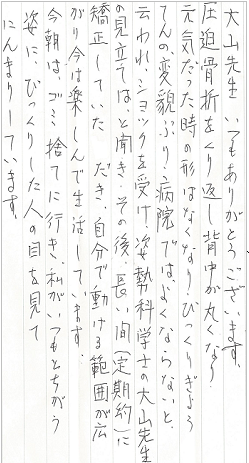 大山先生 いつもありがとうございます。
圧迫骨折をくり返し背中が丸くなり
元気だった時の形はなくなり!びっくりぎょう
てんの、変貌ぶり、病院ではよくならないと、
云われ、ショックを受け、姿勢科学士の大山先生
の見立ては、と聞き、その後、長い間(定期的)に
矯正していた だき、自分で動ける範囲が広
がり今は楽しんで生活しています。
今朝は、ゴミ捨てに行き、私がいつもとちがう
姿に、びっくりした人の目を見て
にんまりしています。